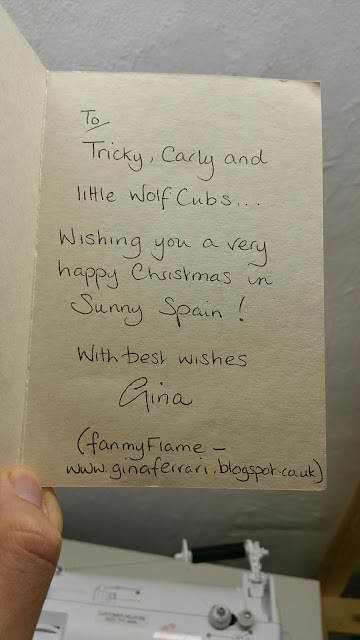 To
Tricky, Carly and
little Wolf Cubs...
Wishing you a very
happy Christmas in
Sunny Spain!
With best wishes
Gina
(fanmyFlame -
www.ginaferrari.blogspot.co.uk)